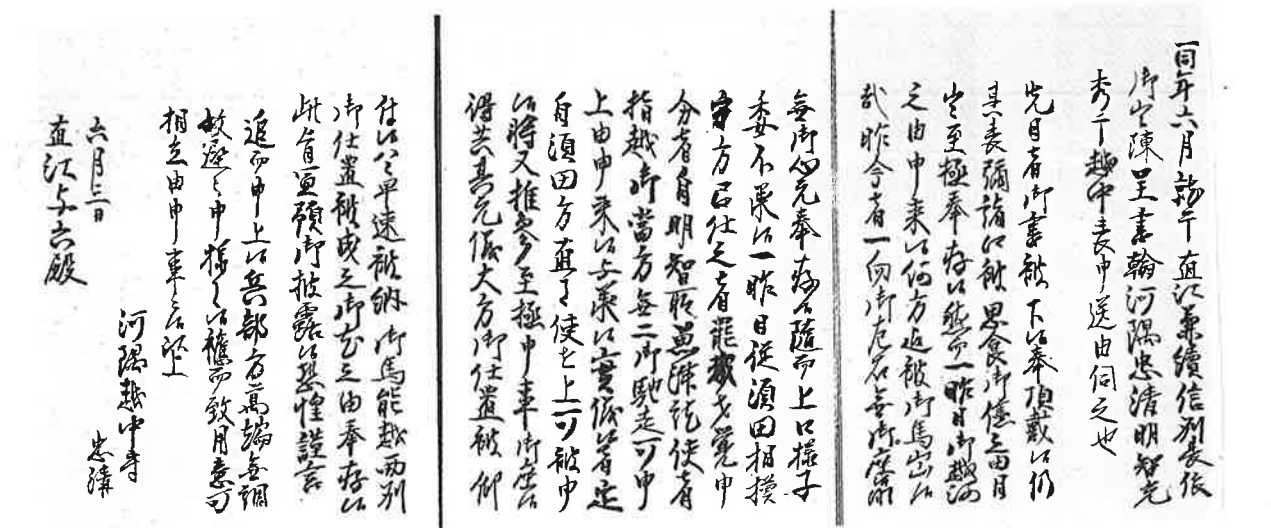 一同年六月初テ直江兼續信州表張
御出陳呈書翰河隅忠清明智光
秀テ越中表申送由伺之也
先日者御書被下候奉頂戴候仍
其表彌諸口被思食御儘之由目
出至極奉存候然而一昨日御越河
之由申来候何方迄被御馬出候
哉昨今者一向御左右無御座候
無御心元奉存候随而上口様子
委不承候一昨日従須田相模
守方召仕之者罷越才覚申
分者自明智所魚津迄使者
指越御當方無二御馳走可申
上由申来候与承候實儀候者定
自須田方直ニ使を上可被申
候将又推参至極申事御座候
得共其元儀大方御仕置被仰
付候ハヽ早速被納御馬能越両州
御仕置被成之御尤之由奉存候
此旨宜預御披露候恐惶謹言
追而申上候兵部方萬端無調
故避之申様ニ候穐而致用意可
相立由申事ニ候以上
河隅越中守
忠清
六月三日
直江与六殿